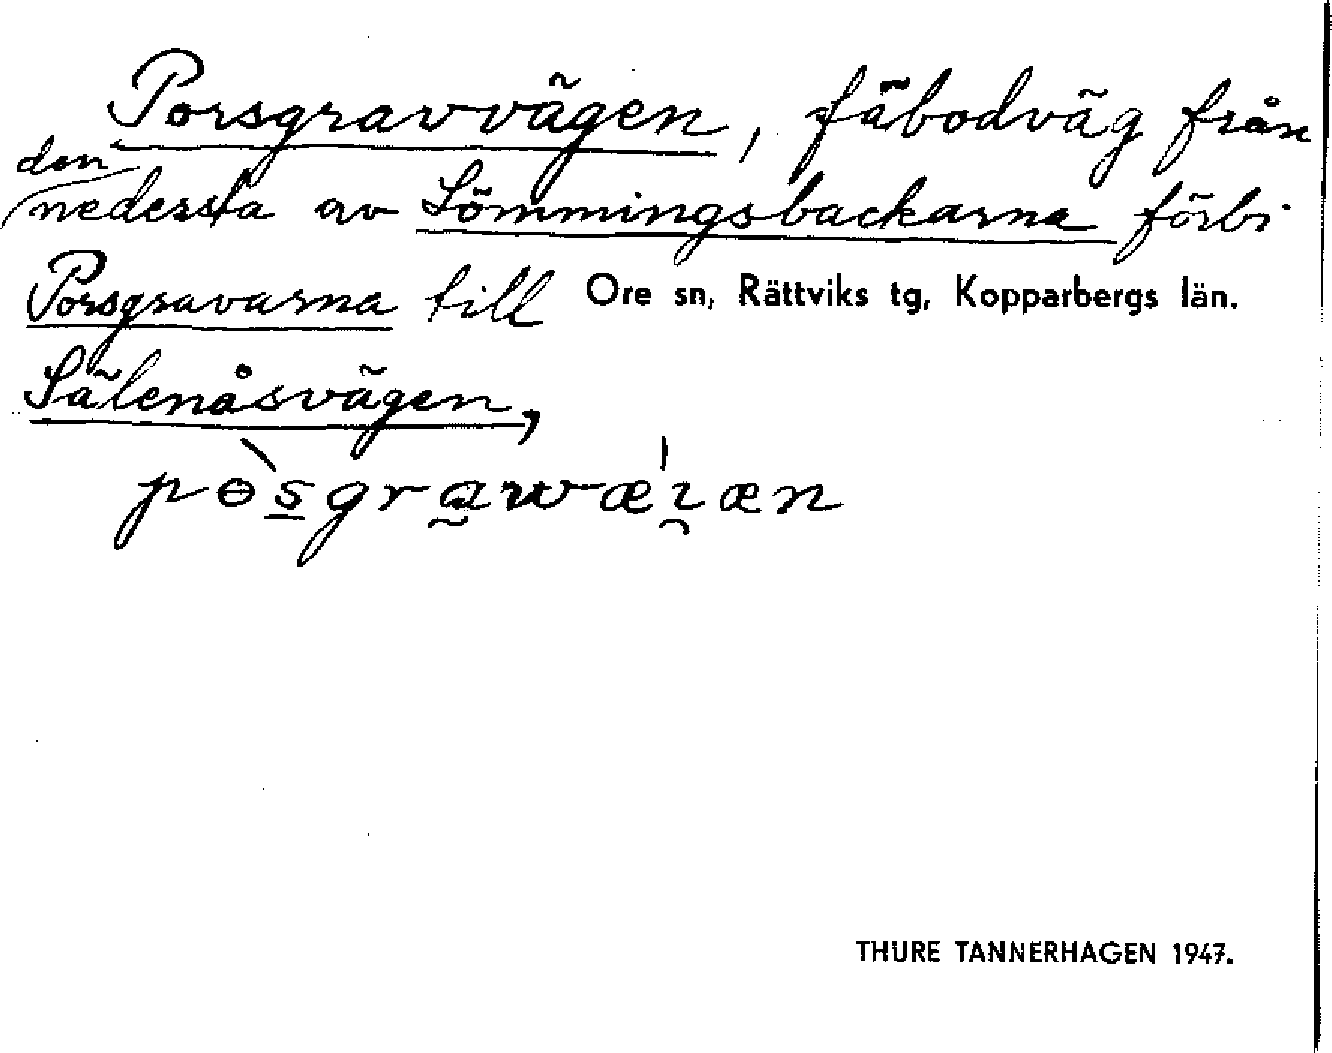 Porsgravvägen, fäbodväg från
den
nedersta av Sömmingsbackarna förbi
Porsgravarna till Ore sn, Rättviks tg, Kopparbergs län.
Sälenåsvägen,
pɵ̀s̲gra̰wǽɪ̯æn
THURE TANNERHAGEN 1947.